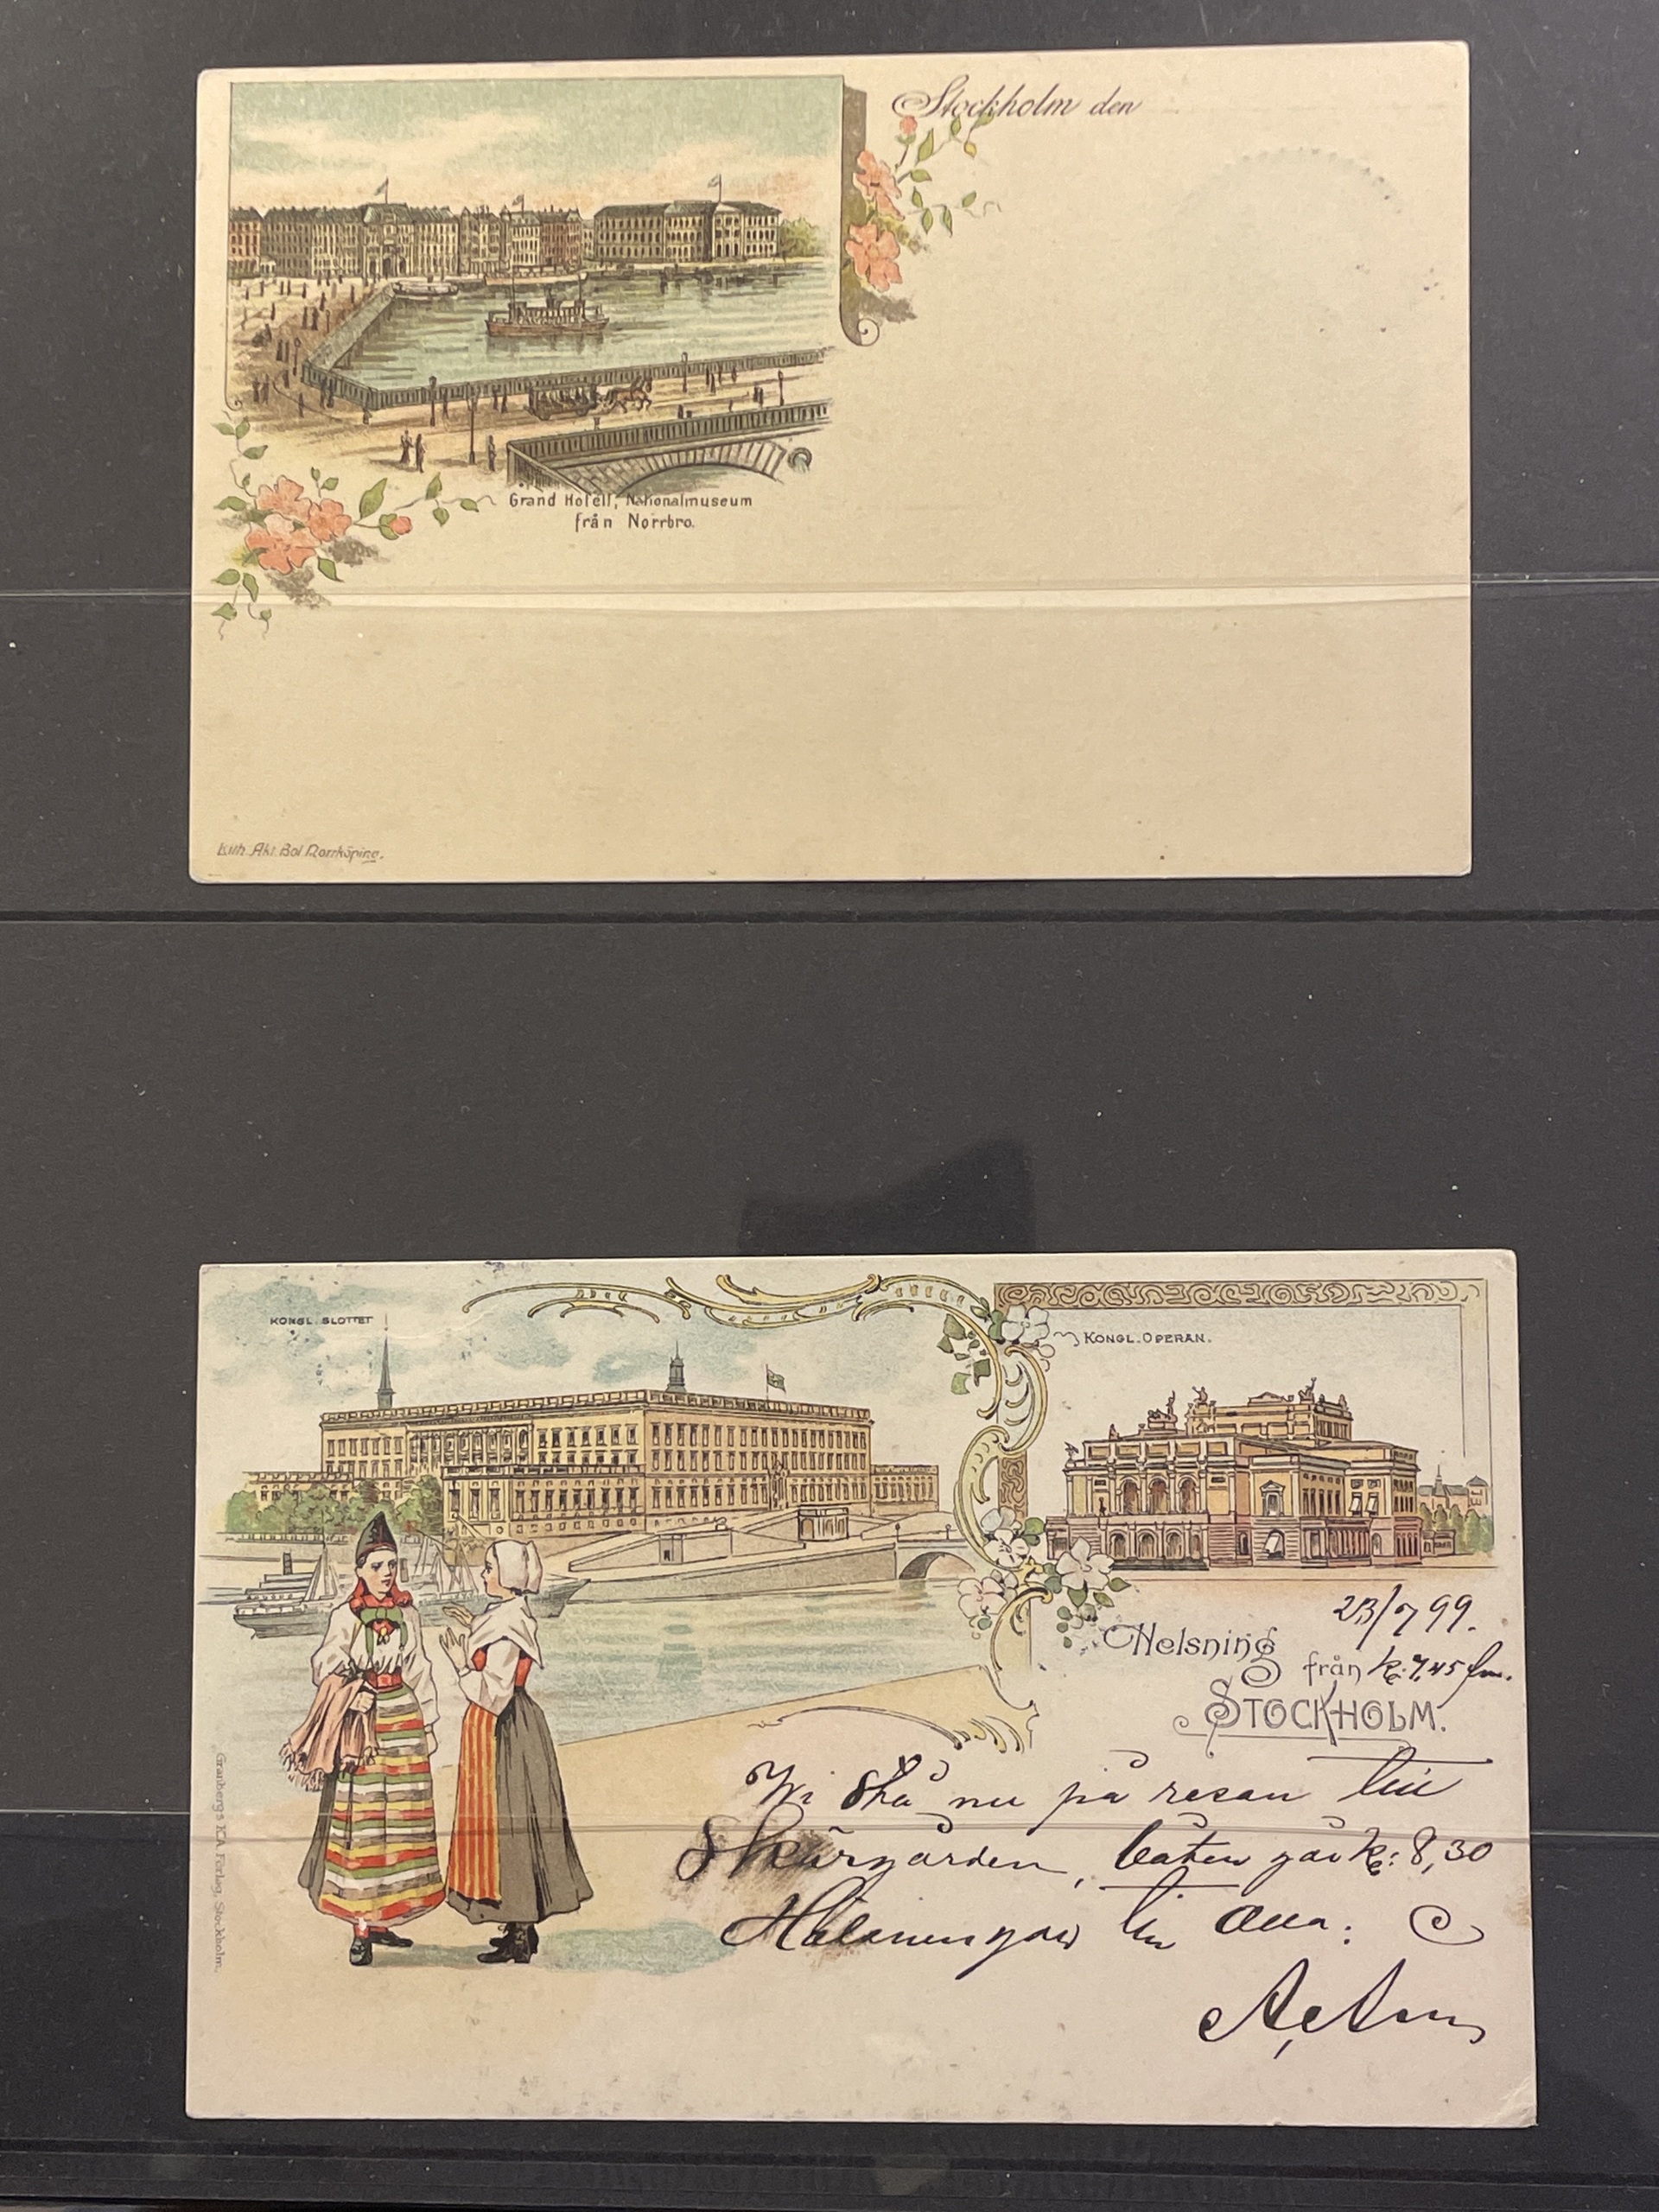 Stockholm den
Grand Hotell, Nationalmuseum
från Norrbro.
Lith. Akt. Bol. Norrköping.
KONGL. SLOTTET
KONGL. OPERAN.
23/7 99.
Helsning
från k: 7,45 fm.
STOCKHOLM.
Wi stå nu på resan till
Skärgården, båten går k: 8,30
Helsningar till Alla:
Granbergs K.A. Förlag, Stockholm.